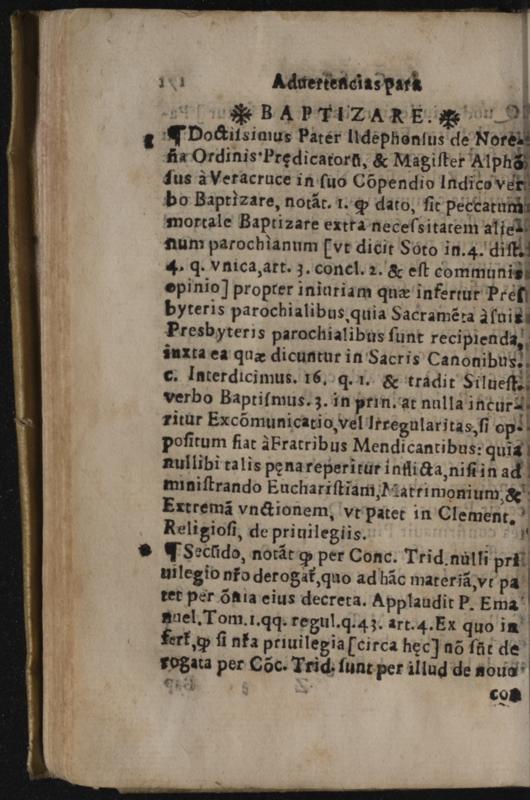 Aduertencias para
BAPTIZARE.
¶ Doctissimus Pater Ildephonsus de Nore-
ña Ordinis Prędicatorũ, & Magister Alphõ
sus à Veracruce in suo Cõpendio Indico ver
bo Baptizare, notãt. 1. ꝙ dato, sit peccatum
mortale Baptizare extra necessitatem alie-
num parochianum [vt dicit Soto in. 4. dist.
4. q. vnica, art. 3. concl. 2. & est communis
opinio] propter iniuriam quæ infertur Pres
byteris parochialibus, quia Sacramẽta à suis
Presbyteris parochialibus sunt recipienda,
iuxta ea quæ dicuntur in Sacris Canonibus.
c. Interdicimus. 16. q. 1. & tradit Siluest.
verbo Baptismus. 3. in prin. at nulla incur-
ritur Excõmunicatio, vel Irregularitas, si op-
positum fiat à Fratribus Mendicantibus: quia
nullibi talis pęna reperitur inflicta, nisi in ad
ministrando Eucharistiam, Matrimonium, &
Extremã vnctionem, vt patet in Clement.
Religiosi, de priuilegiis.
¶ Secũdo, notãt ꝙ per Conc. Trid. nulli pri
uilegio nr̃o derogat̃, quo ad hãc materiã, vt pa
tet per õnia eius decreta. Applaudit P. Ema
nuel. Tom. 1. qq. regul. q. 43. art. 4. Ex quo in
fert̃, ꝙ si nr̃a priuilegia [circa hęc] nõ sũt de
rogata per Cõc. Trid. sunt per illud de nouo
con